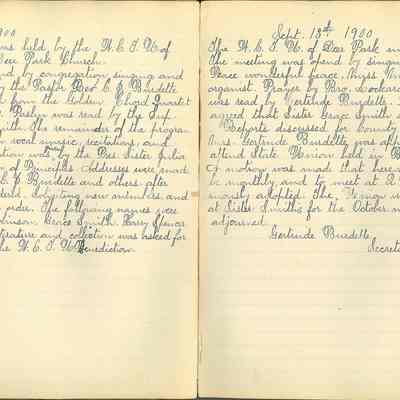 1900
was held by the W.C.T.U. of
Deer Park Church.
by congregation singing and
by the Pastor Rev. C. J. Burdette
from the Golden Chord Quartet
Psalm was read by the Sup.
Smith. The remainder of the program
vocal music, recitations, and
was by the Pres. Sister Julia
of Principles. Addresses were made
C. J. Burdette and others after
new members, and
order. The following names were
Grace Smith, Harry Spencer
Literature and collection was asked for
the W.C.T.U. Benediction.
Sept. 13th 1900
The W.C.T.U. of Deer Park
the meeting was opend by singing
Peace wonderful peace, Miss
organist. Prayer by Bro. Lockard
was read by Gertrude Burdette.
agreed that Sister Grace Smith
Reports discussed for County
Mrs. Gertrude Burdette was
attend State Union held in
A motion was made that
be monthly, and to meet at 2
mously adopted. The Union
at Sister Smiths for the October
adjourned.
Gertrude Burdette
Secreta